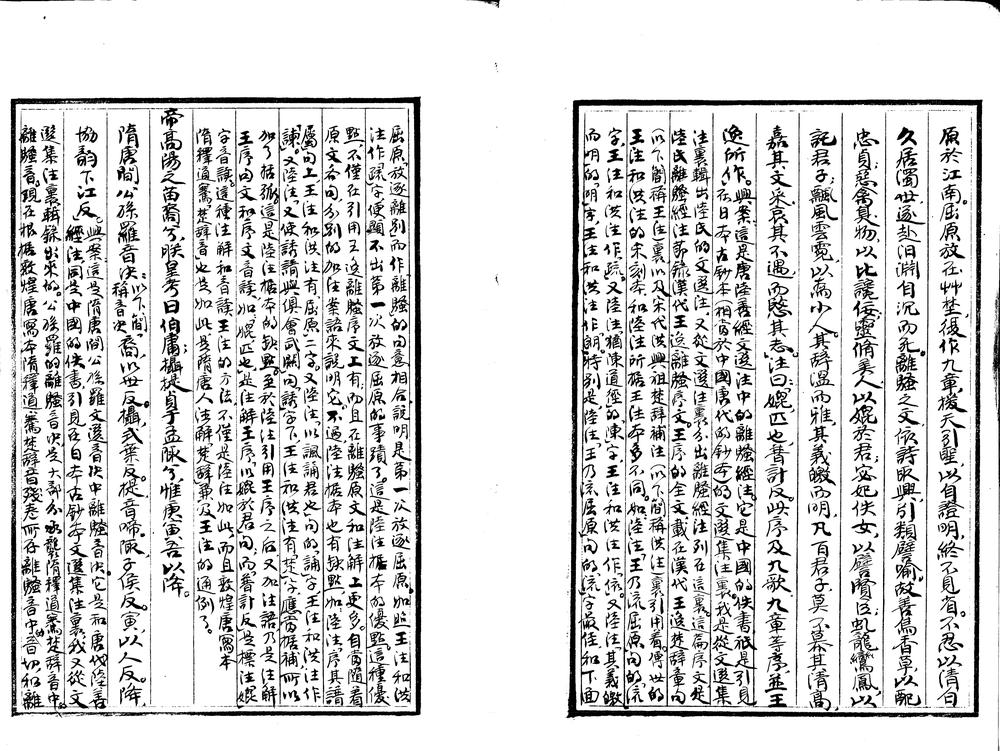 原於江南。屈原放在艸埜，復作九章，援天引聖，以自證明，終不見省。不忍以清白
久居濁世，遂赴汨淵自沉而死。離騷之文，依詩取興，引類譬喻。故善鳥香草，以配
忠貞；惡禽臭物，以比讒佞；靈脩美人，以媲於君；宓妃佚女，以譬賢臣；虬龍鸞鳳，以
託君子；飄風雲霓，以為小人。其辭溫而雅，其義皦而明。凡百君子，莫不慕其清高，
嘉其文采，哀其不遇，而愍其志。注曰：媲，匹也，普計反。此序及九歌九章等序，並王
逸所作。興案這是唐陸善經文選注中的離騷經注。它是中國的佚書，祇是引見
在日本古鈔本（相當於中國唐代的鈔本）的文選集注裏。我是從文選集
注裏輯出陸氏的文選注，又從文選注裏分出離騷經注，列在這裏。這篇序文是
陸氏離騷經注節錄漢代王逸離騷序文。王序的全文載在漢代王逸楚辭章句
（以下簡稱王注）裏以及宋代洪興祖楚辭補注（以下簡稱洪注）裏引用着。傳世的
王注和洪注的宋刻本王注和洪注所據王注本多不同。如陸注「王乃流屈原」句的「流」
字，王注和洪注作「疏」。又陸注「猶陳道徑」的「陳」字，王注和洪注作「依」。又陸注「其義皦
而明」的「明」字，王注和洪注作「朗」。特別是陸注「王乃流屈原」句的「流」字最佳，和下面
屈原「放逐離別而作離騷」的句意相合，說明是第一次放逐屈原。如照王注和洪
注作「疏」字，便顯不出第一次放逐屈原的事蹟了。這是陸注據本的優點。這種優
點，不僅在引用王逸離騷序文上有，而且在離騷原文和注解上更多。自當隨着
原文各句，分別的加注案語來說明它。不過陸注據本也有缺點。如陸注「序其譜
屬」句上，王注和洪注有「屈原」二字。又陸注「以諷誦君也」句的「誦」字，王注和洪注作
「諫」。又陸注「又使請與俱會武關」句「請」字下，王注和洪注有「楚」字，應當據補，所以
加了括弧。這是陸注據本的缺點。至於陸注引用王序之後，又加注語，乃是注解
王序內文和序文音讀。如「媲，匹也」是注解王序「以媲於君」句，而「普計反」是標注「媲」
字音讀。這種注解和音讀王注的方法，不僅是陸注如此，而且敦煌唐寫本
隋釋道騫楚辭音也是如此，是隋唐人注解楚辭兼及王注的通例了。
帝高陽之苗裔兮，朕皇考曰伯庸；攝提貞于孟陬兮，惟庚寅吾以降。
隋唐間公孫羅音決：以下簡稱音決。裔以世反。攝式葉反。提音啼。陬子侯反。寅以人反。降，
協韵下江反。興案這是隋唐間公孫羅文選音決中離騷音決。它是和唐代陸善
經注同是中國的佚書，引見在日本古鈔本文選集注裏。我又從文
選集注裏輯錄出來的。公孫羅的離騷音決，是大部分承襲隋釋道騫楚辭音中
離騷音。現在根據敦煌唐寫本隋釋道騫楚辭音殘卷所存離騷音中的音切，和離